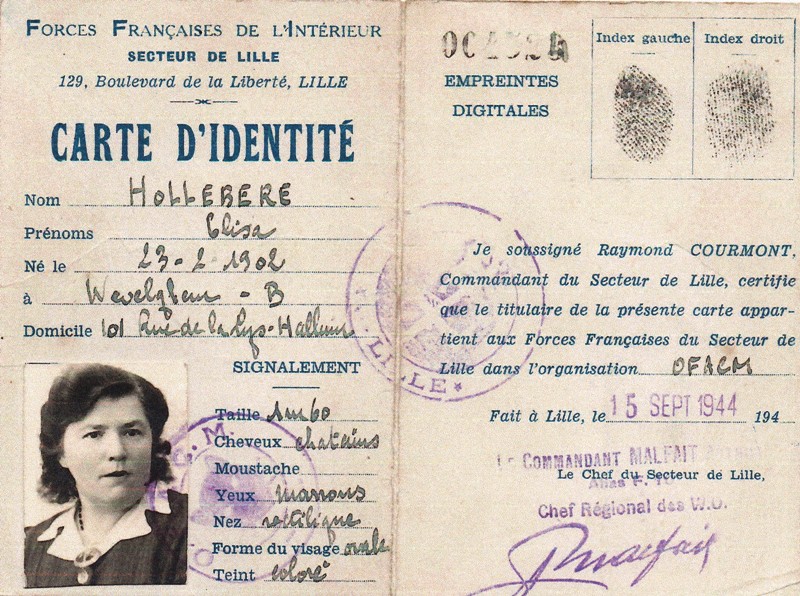 FORCES FRANÇAISES DE L'INTÉRIEUR
SECTEUR DE LILLE
129, Boulevard de la Liberté, LILLE
CARTE D'IDENTITÉ
Nom HOLLEBEKE
Prénoms Elisa
Né le 23-2-1902
à Wevelghem - B
Domicile 101 Rue de la Lys-Halluin
SIGNALEMENT
Taille 1m60
Cheveux chatains
Moustache
Yeux marrons
Nez rectiligne
Forme du visage ovale
Teint coloré
G.M.
EMPREINTES
DIGITALES
Index gauche
Index droit
Je soussigné Raymond COURMONT,
Commandant du Secteur de Lille, certifie
que le titulaire de la présente carte appar-
tient aux Forces Françaises du Secteur de
Lille dans l'organisation OFACM
LILLE
Fait à Lille, le 15 SEPT 1944 194
COMMANDANT MALFAIT
Le Chef du Secteur de Lille,
Alias F.
Chef Régional des W.O.